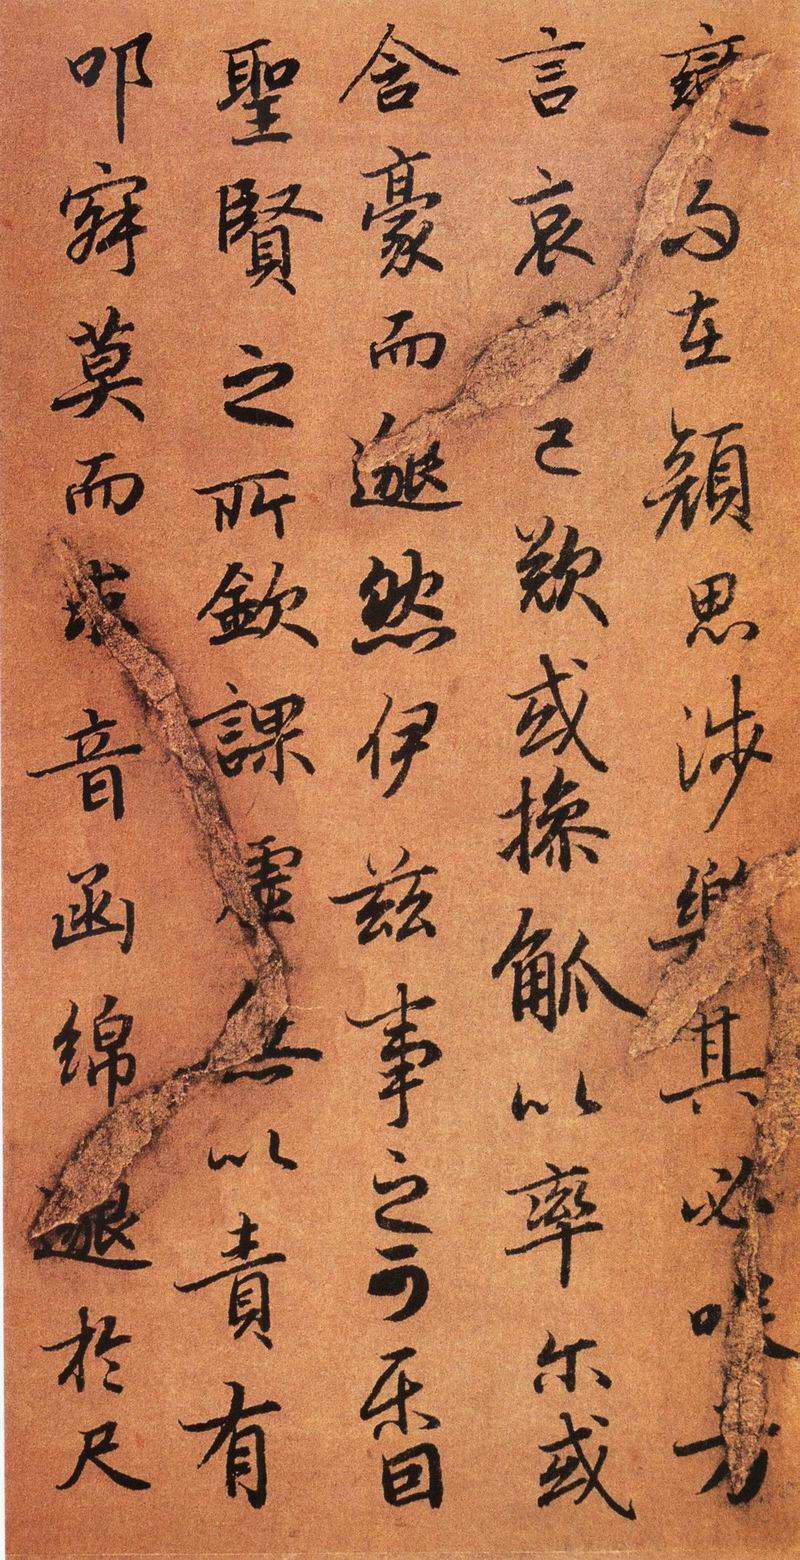 變而在顏思涉樂其必咲方
言哀而已歎或操觚以率尔或
含豪而邈然伊茲事之可樂固
聖賢之所欽課虛無以責有
叩寂莫而求音函綿邈於尺